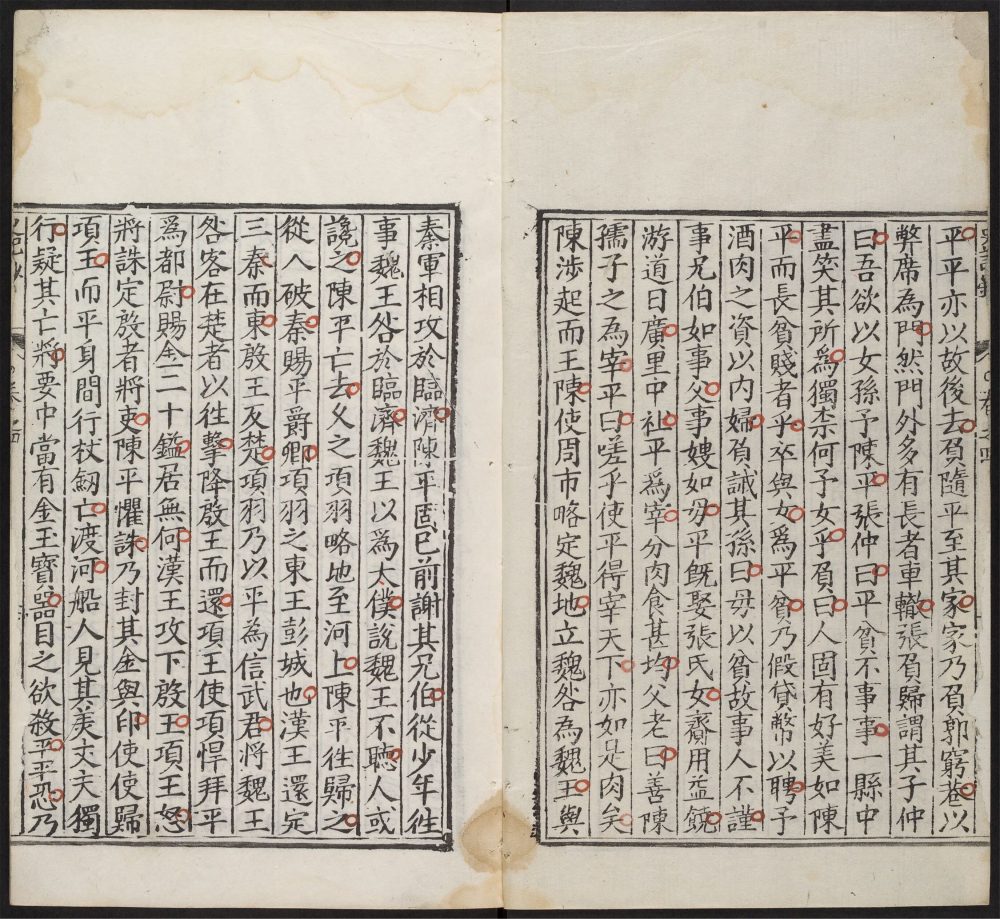 平平亦以故後去負隨平至其家家乃負郭窮巷以
弊席為門然門外多有長者車轍張負歸謂其子仲
曰吾欲以女孫予陳平張仲曰平貧不事事一縣中
盡笑其所為獨柰何予女乎負曰人固有好美如陳
平而長貧賤者乎卒與女為平貧乃假貸幣以聘予
酒肉之資以内婦負誡其孫曰毋以貧故事人不謹
事兄伯如事父事嫂如毋平既娶張氏女齎用益饒
游道日廣里中社平為宰分肉食甚均父老曰善陳
孺子之為宰平曰嗟乎使平得宰天下亦如是肉矣
陳涉起而王陳使周市略定魏地立魏咎為魏王與
秦軍相攻於臨濟陳平固已前謝其兄伯從少年往
事魏王咎於臨濟魏王以為太僕說魏王不聽人或
讒之陳平亡去久之項羽略地至河上陳平往歸之
從入破秦賜平爵卿項羽之東王彭城也漢王還定
三秦而東殷王反楚項羽乃以平為信武君將魏王
咎客在楚者以往擊降殷王而還項王使項悍拜平
為都尉賜金二十鎰居無何漢王攻下殷王項王怒
將誅定殷者將吏陳平懼誅乃封其金與印使使歸
項王而平身間行杖劒亡渡河船人見其美丈夫獨
行疑其亡將要中當有金玉寶器目之欲殺平平恐乃